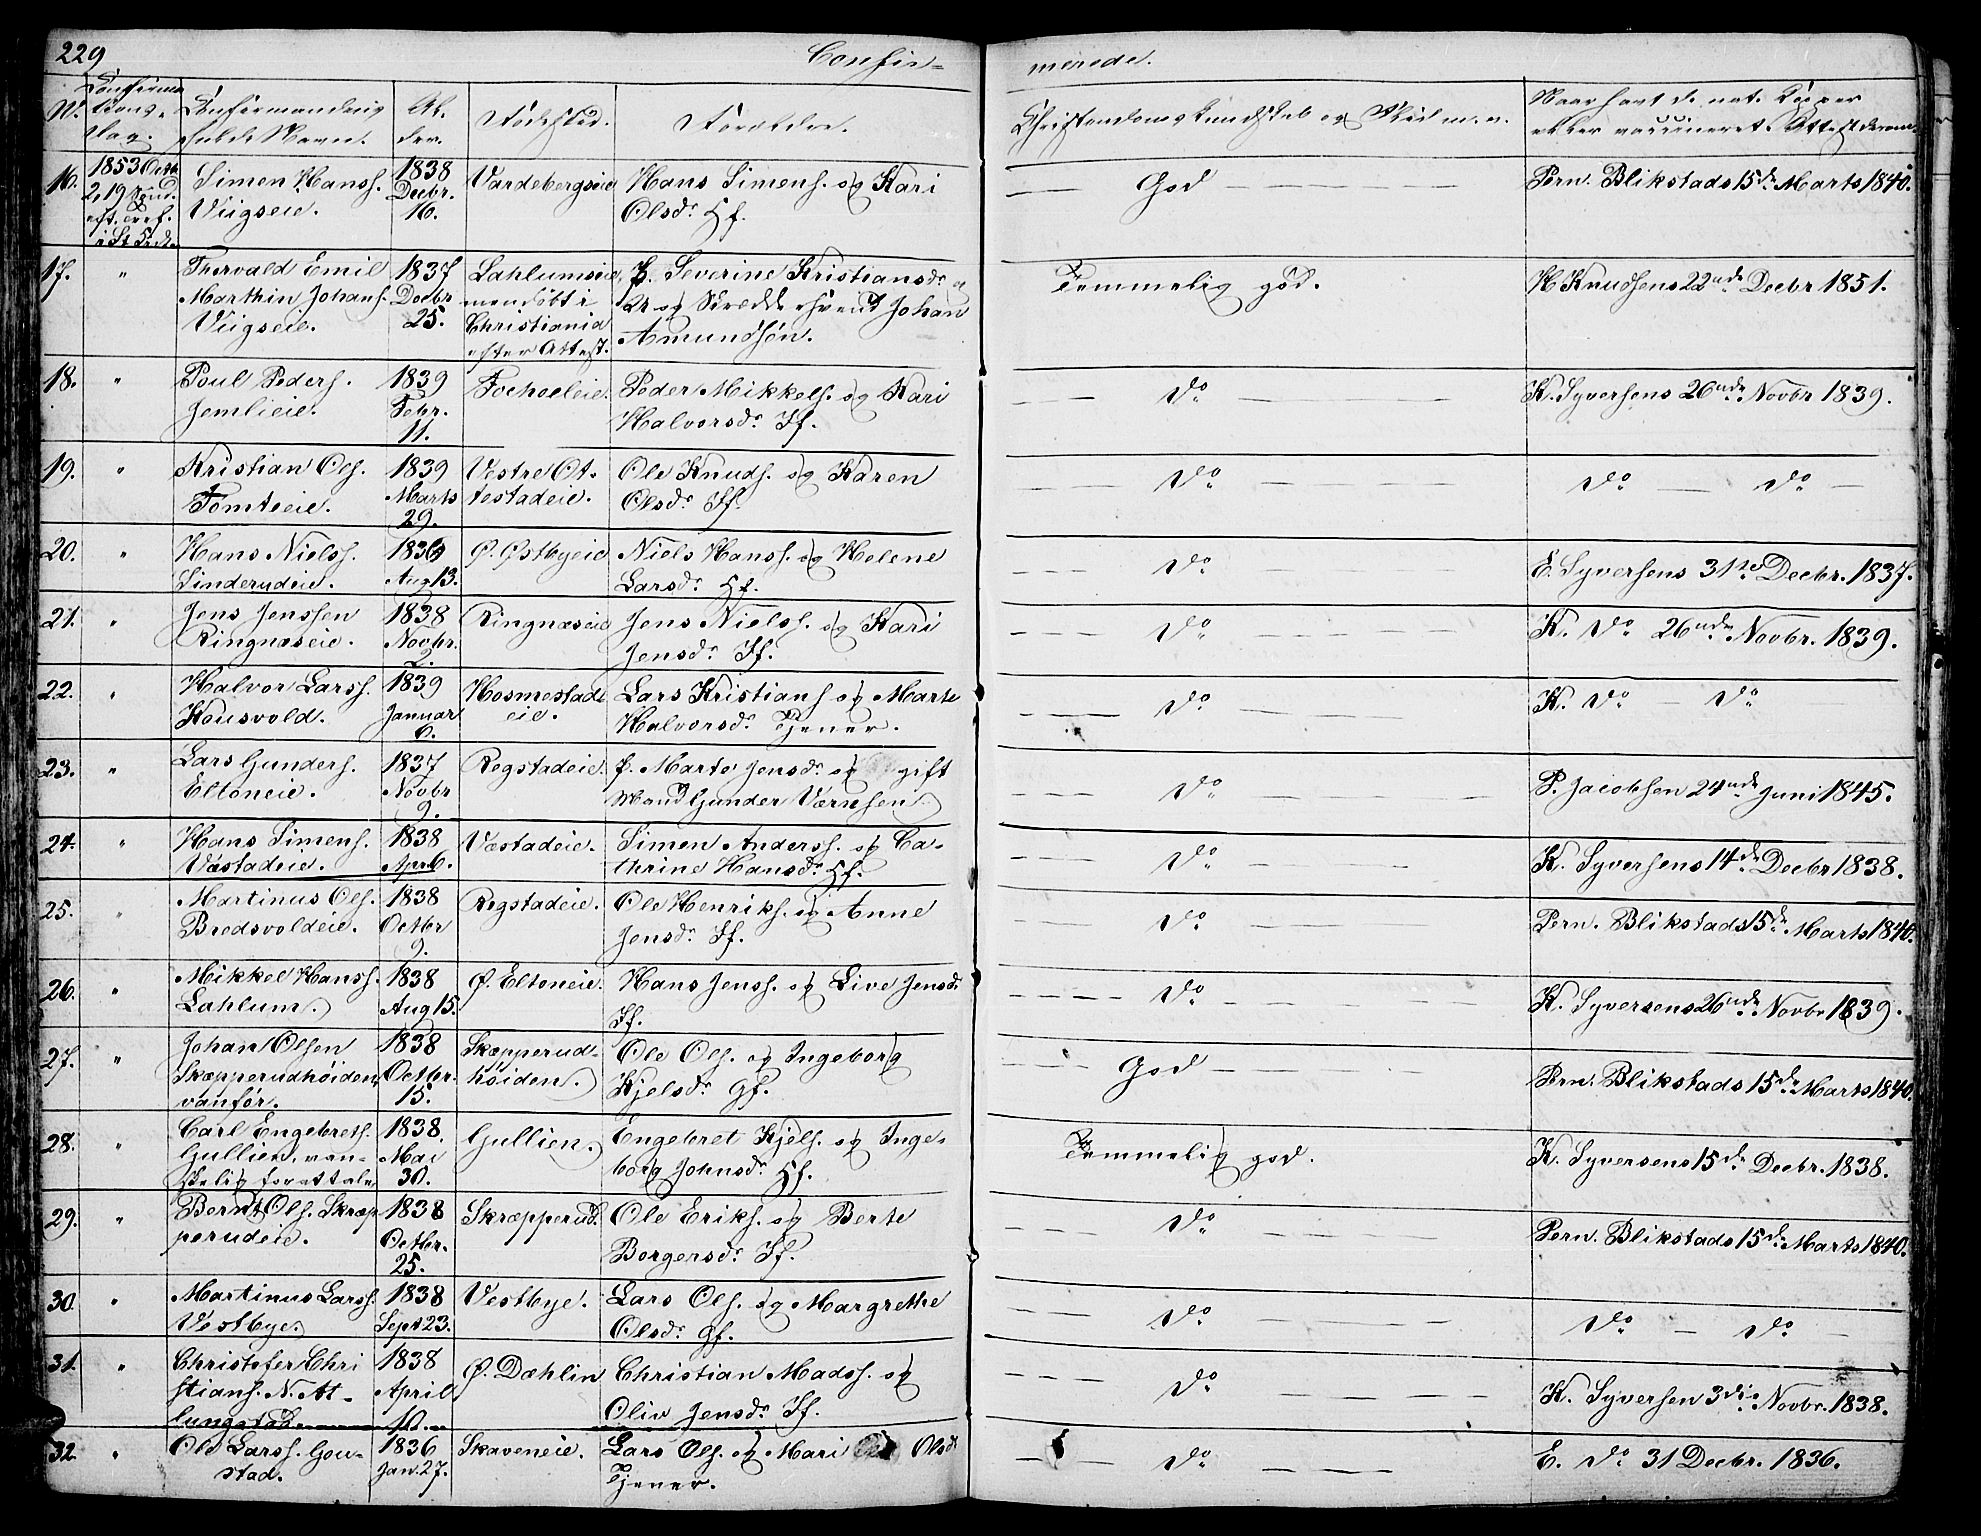 229 Confir= merede.
N. Confirma tions- dag. Confirmandens fulde Navn. Al- der. Fødested. Forældre. Christendomskundskab og Flid m. v. Naar havt de nat. Kopper eller vaccineret. Attest derom.
16. 1853 Octb. 2, 19 Sønd. eft. Tref. i St. Kirke Simen Hanss. Viigseie. 1838 Decbr. 16. Vardebergseie Hans Simens. og Kari Olsdr. Hf. God Pern. Blikstads 15de Marts 1840.
17. " Thorvald Emil Marthin Johans. Viigseie. 1837 Decbr 25. Lahlumseie, men døbt i Christiania efter Attest. P. Severine Kristiansdr. og Skrædersvend Johan Amundsøn. Temmelig god. H. Knudsens 22nde Decbr 1851.
18. " Poul Peders. Jemlieie. 1839 Febr. 11. Fochoeleie. Peder Mikkels. og Kari Halvorsdr. If. Do K. Syversens 26nde Novbr 1839.
19. " Kristian Ols. Tomteeie. 1839 Marts 29. Vestre Ot- testadeie. Ole Knuds. og Karen Olsdr. If. Do Do — Do —
20. " Hans Niels. Sinderudeie. 1836 Aug 13. Ø. Østbyeie Niels Hanss. og Helene Larsdr. Hf. Do E. Syversens 31te Decbr. 1837.
21. " Jens Jenssen Ringnæseie. 1838 Novbr. 2. Ringnæseie Jens Niels. og Kari Jensdr. If. Do K. Do 26nde Novbr. 1839.
22. " Halvor Larss. Kousvold. 1839 Januar 6. Hosmestads eie. Lars Kristians. og Marte Halvorsdr. Tjener. Do K. Do — Do
23. " Lars Gunders. Eltoneie. 1837 Novbr 9. Rogstadeie. P. Marte Jensdr. og gift Mand GunderVærnsen. Do P. Jacobsen 24nde Juni 1845.
24. " Hans Simens. Væstadeie. 1838 Apr 6. Væstadeie. Simen Anderss. og Ca- thrine Hansdr. Hf. Do K. Syversens 14de Decbr 1838.
25. " Martinus Ols. Bredsvoldeie. 1838 Octbr 9. Rogstadeie. Ole Henriks. og Anne Jensdr. If. Do Pern. Blikstads 15de Marts 1840.
26. " Mikkel Hanss. Lahlum. 1838 Aug 15. Ø. Eltoneie. Hans Jenss. og Live Jensdr. If. Do K. Syversens 26nde Novbr 1839.
27. " Johan Olsen Skæpperudhøiden, vanfør. 1838 Octbr. 15. Skæpperud- høiden. Ole Ols. og Ingeborg Kjelsdr. gf. God Pern. Blikstads 15de Marts 1840
28. " Carl Engebrets. Gullien, van- skelig for at tale 1838. Mai 30. Gullien. Engebret Kjels. og Inge- borg Johnsdr. Hf. Temmelig god. K. Syversens 15de Decbr. 1838.
29. " Bernt Ols. Skræp- perudeie. 1838 Octbr. 25. Skræpperud. Ole Eriks. og Berte Borgersdr. If. Do Pern. Blikstads 15de Marts 1840.
30. " Martinus Larss. Vestbye. 1838 Sept 23. Vestbye. Lars Ols. og Margrethe Olsdr. gf. Do Do — Do —
31. " Christofer Chri stians. N. At- lungstad. 1838 April 10. Ø. Dæhlin Christian Madss. og Oliv Jensdr. If. Do K. Syversen 3die Novbr. 1838.
32. " Ole Larss. Gou- stad. 1836 Jan. 27. Skaveneie. Lars Ols. og Mari Olsdr Tjener. Do E. Do 31 Decbr. 1836.